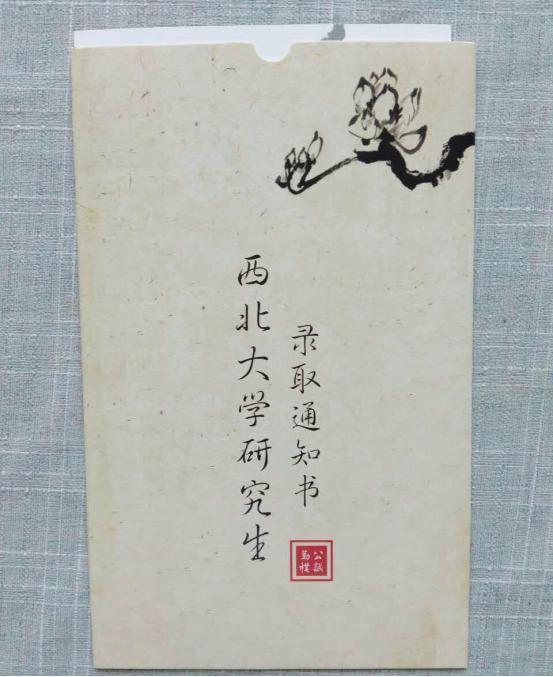 西北大学研究生
录取通知书
公誠
勤樸